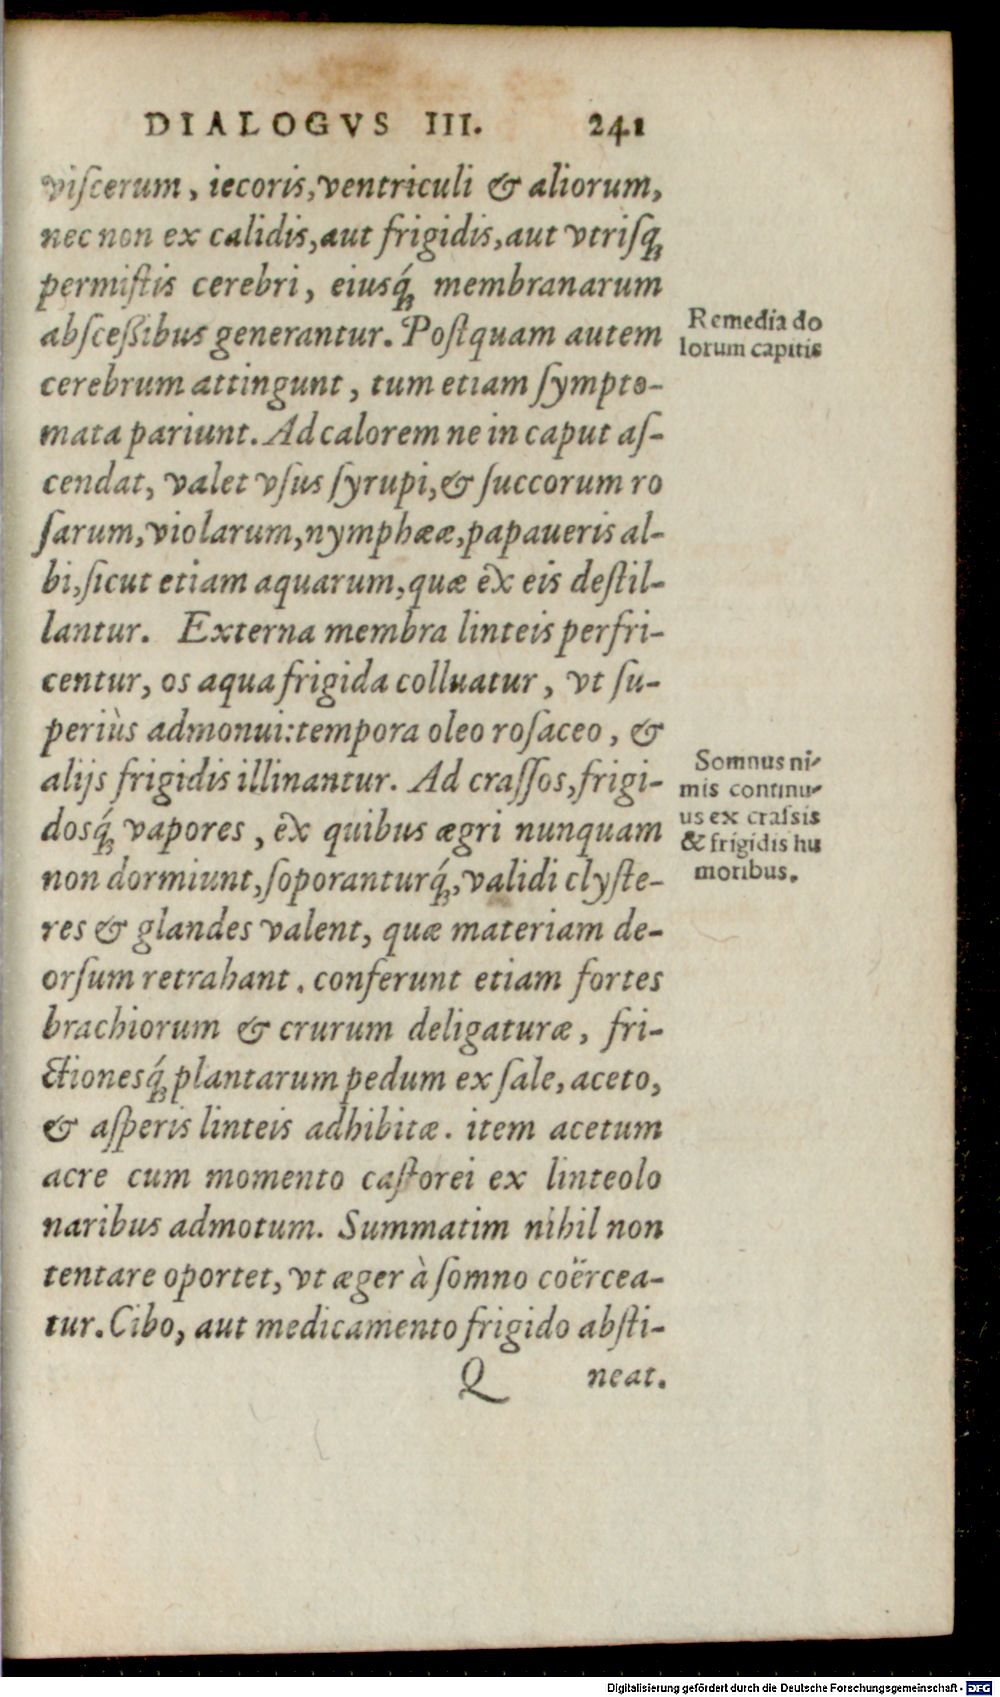 DIALOGVS III. 241
viſcerum, iecoris, ventriculi & aliorum,
nec non ex calidis, aut frigidis, aut vtriſq́;
permiſtis cerebri, eiusq́; membranarum
abſceßibus generantur. Poſtquam autem
cerebrum attingunt, tum etiam ſympto-
mata pariunt. Ad calorem ne in caput aſ-
cendat, valet vſus ſyrupi, & ſuccorum ro
ſarum, violarum, nymphææ, papaueris al-
bi, ſicut etiam aquarum, quæ èx eis deſtil-
lantur. Externa membra linteis perfri-
centur, os aqua frigida colluatur, vt ſu-
periùs admonui: tempora oleo roſaceo, &
alijs frigidis illinantur. Ad craſſos, frigi-
dosq́; vapores, èx quibus ægri nunquam
non dormiunt, ſoporanturq́;, validi clyſte-
res & glandes valent, quæ materiam de-
orſum retrahant. conferunt etiam fortes
brachiorum & crurum deligaturæ, fri-
ctionesq́; plantarum pedum ex ſale, aceto,
& aſperis linteis adhibitæ. item acetum
acre cum momento caſtorei ex linteolo
naribus admotum. Summatim nihil non
tentare oportet, vt æger à ſomno coërcea-
tur. Cibo, aut medicamento frigido abſti-
Q neat.
Remedia do
lorum capitis
Somnus ni-
mis continu-
us ex craſsis
& frigidis hu
moribus.
Digitalisierung gefördert durch die Deutsche Forschungsgemeinschaft - DFG